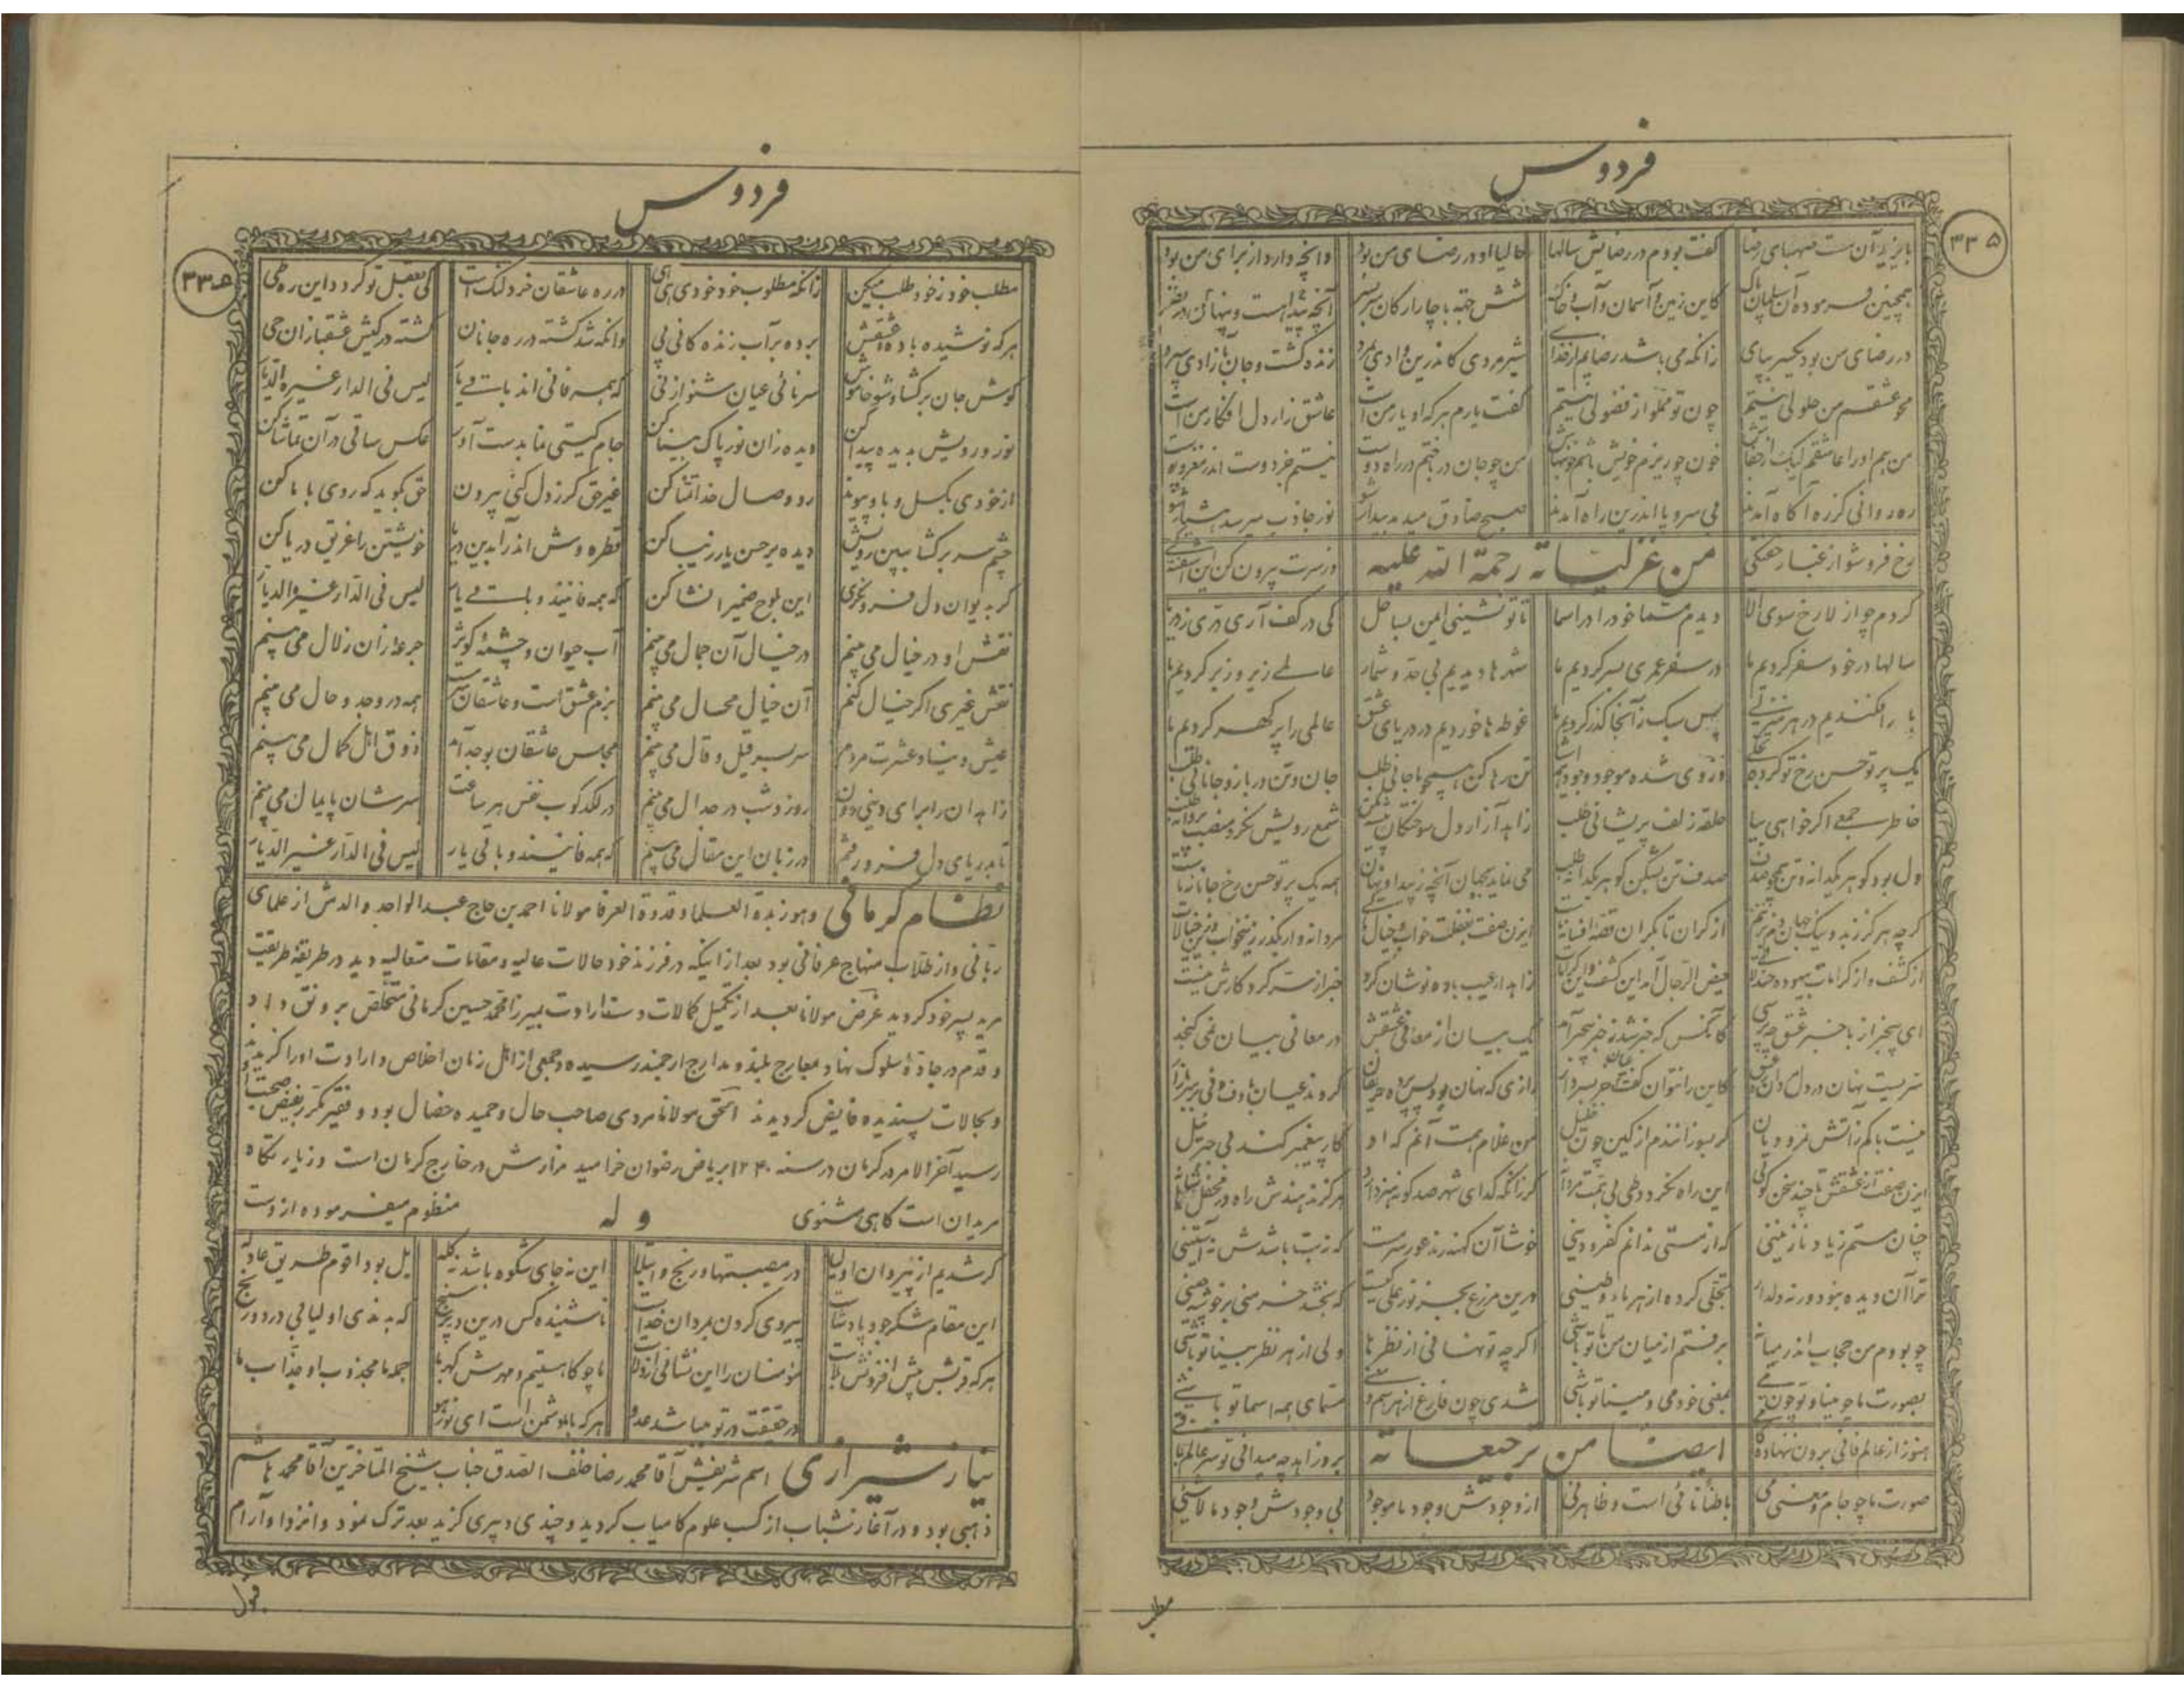 فردوس
۳۳۵
بایزید آن مست صهبای رضا گفت بودم در رضایش سالها حالیا او در رضای من بود وانچه دارد از برای من بود
همچنین فرموده آن کاین زمین و آسمان و آب و خاک شش جهة با چار ارکان سر بسر آنچه پیدا هست و پنهان در نظر
در رضای من بود یکسر بپای زانکه می باشد رضایم از خدای شیر مردی کاندرین وادی بمرد زنده گشت و جان بآزادی سپرد
محو عشقم من حلولی نیستم چون تو مملو از فضولی نیستم گفت یارم هر که او یار من است عاشق زار دل افکار من است
من هم او را عاشقم لیک از خون چو ریزم خویش باشم خونبهاش من چو جان در باختم در راه دوست نیستم خود دوست اندر
ره روانی کز ره آگاه آمدند بی سر و پا اندرین راه آمدند صبح صادق میدمد بیدار شو نور جاذب میرسد هشیار شو
رخ فرو شو از غبار من غزلیاته رحمة الله علیه وز سرت بیرون کن این
کردم چو از لا رخ سوی الا دیدم مسما خود را در اسما تا تو نشینی ایمن بساحل کی در کف آری دری ز دریا
سالها در خود سفر کردیم ما در سفر عمری بسر کردیم ما شهرها دیدیم بی حد و شمار عالمی زیر و زبر کردیم ما
پا را فکندیم در هر منزلی پس سبک زآنجا گذر کردیم ما غوطه ها خوردیم در دریای عشق عالمی را پر گهر کردیم ما
یک پرتو حسن رخ تو کرده تجلی وز وی شده موجود وجود تن رها کن همچو ما جانی طلب جان و تن در باز و جانانی طلب
خاطر جمعی اگر خواهی بیا حلقه زلف پریشانی طلب زاهد آزار دل سوختگان شمع رویش نگرد منصب پروانه طلب
دل بود گوهر یکدانه و تن همچو صدف صدف تن بشکن گوهر یکدانه طلب می نماید بجهان آنچه ز پیدا و نهان همه یک پرتو حسن رخ جانانه ماست
از کران تا بکران قصه افسانه ازین صفت بغفلت خواب و خیال مردانه وار بگذر زین خواب و زین خیالات
از کشف و از کرامات بیهوده حیض الرجال آمد این کشف و این کرامات زاهد از عیب باده نوشان کرد خبر از سر کردگارش نیست
ای بیخبر از با خبر عشق چه پرسی کانکس که خبر شد ز خبر بیخبر آمد یک بیان از معانی عشقش در معانی بیان نمی گنجد
سریست نهان در دل کاین را نتوان گفت جز بسر دار رازی که نهان بود پس پرده گردید عیان با دف و نی بر سر بازار
نیست باکم زآتش نمرودیان گر بسوزانندم از کین چون خلیل من غلام همت آنم که او کار پیغمبر کند بی جبرئیل
ازین صفت از عشقش تا چند سخن گوئی این راه نگردد طی بی همت مردان گر زانکه گدای شهر صد گونه هنر دارد هرگز ندهندش راه در محفل شاه
چنان مستم ز یاد نازنینی که از مستی ندانم کفر و دینی خوشا آن کهنه رند عور سرمست که زیب باشدش نه آستینی
ترا آن دیده نبود ورنه دلدار تجلی کرده از هر ماء و طینی درین مزرع بجز نور علی کیست که بخشد خرمنی بر خوشه چینی
چو بودم من حجاب اندر میانه برفتم از میان من تا تو باشی اگر چه تو نهانی از نظرها ولی از هر نظر بینا تو باشی
بصورت ما چو مینا و تو چون می بمعنی خود می و مینا تو باشی شدی چون فارغ از هر اسم و رسمی مسمای همه اسما تو باشی
هنوز از عالم فانی برون ننهاده ایضا من ترجیعاته برو زاهد چه میدانی تو سر عالم ما
صورت ما چو جام و معنی می باطنا نائی است و ظاهر نی از وجودش وجود ما موجود بی وجودش وجود ما لاشئی
مطلب
فردوس
۳۳۵
مطلب خود ز خود طلب میکن زانکه مطلوب خود خودی ای در ره عاشقان خرد لنگ است کی بعقل تو گردد این ره طی
هر که نوشیده باده عشقش برده بر آب زنده گانی پی وانکه شد کشته در ره جانان گشته در کیش عشقبازان حی
گوش جان برگشا و شو خاموش سر نائی عیان شنو از نی که همه فانی اند باقی یار لیس فی الدار غیره الدیار
نور رویش بدیده پیدا کن دیده زان نور پاک بینا کن جام گیتی نما بدست آور عکس ساقی در آن تماشا کن
از خودی بگسل و باو پیوند رو وصال خدا تمنا کن غیر حق گر ز دل کنی بیرون حق بگوید که روی با ما کن
چشم سر برگشا ببین رویش دیده بر حسن یار زیبا کن قطره وش اندر آ بدین دریا خویشتن را غریق دریا کن
گر بدیوان دل فرو نگری این بلوح ضمیر انشا کن که همه فانیند و باقی یار لیس فی الدار غیره الدیار
نقش او در خیال می بینم در خیال آن جمال می بینم آب حیوان و چشمه کوثر جرعه زان زلال می بینم
نقش غیری اگر خیال کنم آن خیال محال می بینم بزم عشق است و عاشقان سرمست همه در وجد و حال می بینم
عیش دنیا و عشرت مردم سر بسر قیل و قال می بینم مجلس عاشقان بوجد آمد ذوق اهل کمال می بینم
زاهدان را برای دینی دون روز و شب در جدال می بینم در لگدکوب نفس هر ساعت سرشان پایمال می بینم
تا بدریای دل فرو رفتم در زبان این مقال می بینم که همه فانیند و باقی یار لیس فی الدار غیره الدیار
نظام کرمانی وهو زبدة العلما و قدوة العرفا مولانا احمد بن حاج عبدالواحد والدش از علمای
ربانی و از طلاب منهاج عرفانی بود بعد از اینکه در فرزند خود حالات عالیه و مقامات متعالیه دید در طریقه طریقت
مرید پسر خود گردید غرض مولانا بعد از تکمیل کمالات دست ارادت بمیرزا محمد حسین کرمانی متخلص برونق داد
و قدم در جاده سلوک نهاد بمعارج بلند و مدارج ارجمند رسیده و جمعی از اهل زمان اخلاص و ارادت او را گزیدند
و بحالات پسندیده فایض گردیدند الحق مولانا مردی صاحب حال و حمیده خصال بود و فقیر مکرر بفیض صحبت او
رسید آخر الامر در کرمان در سنه ۱۲۴۰ بریاض رضوان خرامید مزارش در خارج کرمان است و زیارتگاه
مریدان است گاهی مثنوی وله منظوم میفرموده ازوست
گر شدیم از پیروان اولیا در مصیبتها و رنج و ابتلا این نه جای شکوه باشد نی گله بل بود اقوم طریق عادله
این مقام شکر جود پیروی کردن بمردان خداست ناشنیده کس درین دیر سپنج که بدندی اولیا بی درد و رنج
هر که قربش بیش افزونش بلاست مؤمنان را این نشانی از ولاست ما چو کاهستیم و مهرش کهربا جمله ما مجذوب او جذاب ما
در حقیقت در تو میباشد عدو هر که با او دشمن است ای
نیاز شیرازی اسم شریفش آقا محمد رضا خلف الصدق جناب شیخ المتاخرین آقا محمد هاشم
ذهبی بود و در آغاز شباب از کسب علوم کامیاب گردید و چندی دبیری گزید بعد ترک نمود و انزوا و آرام
قبول